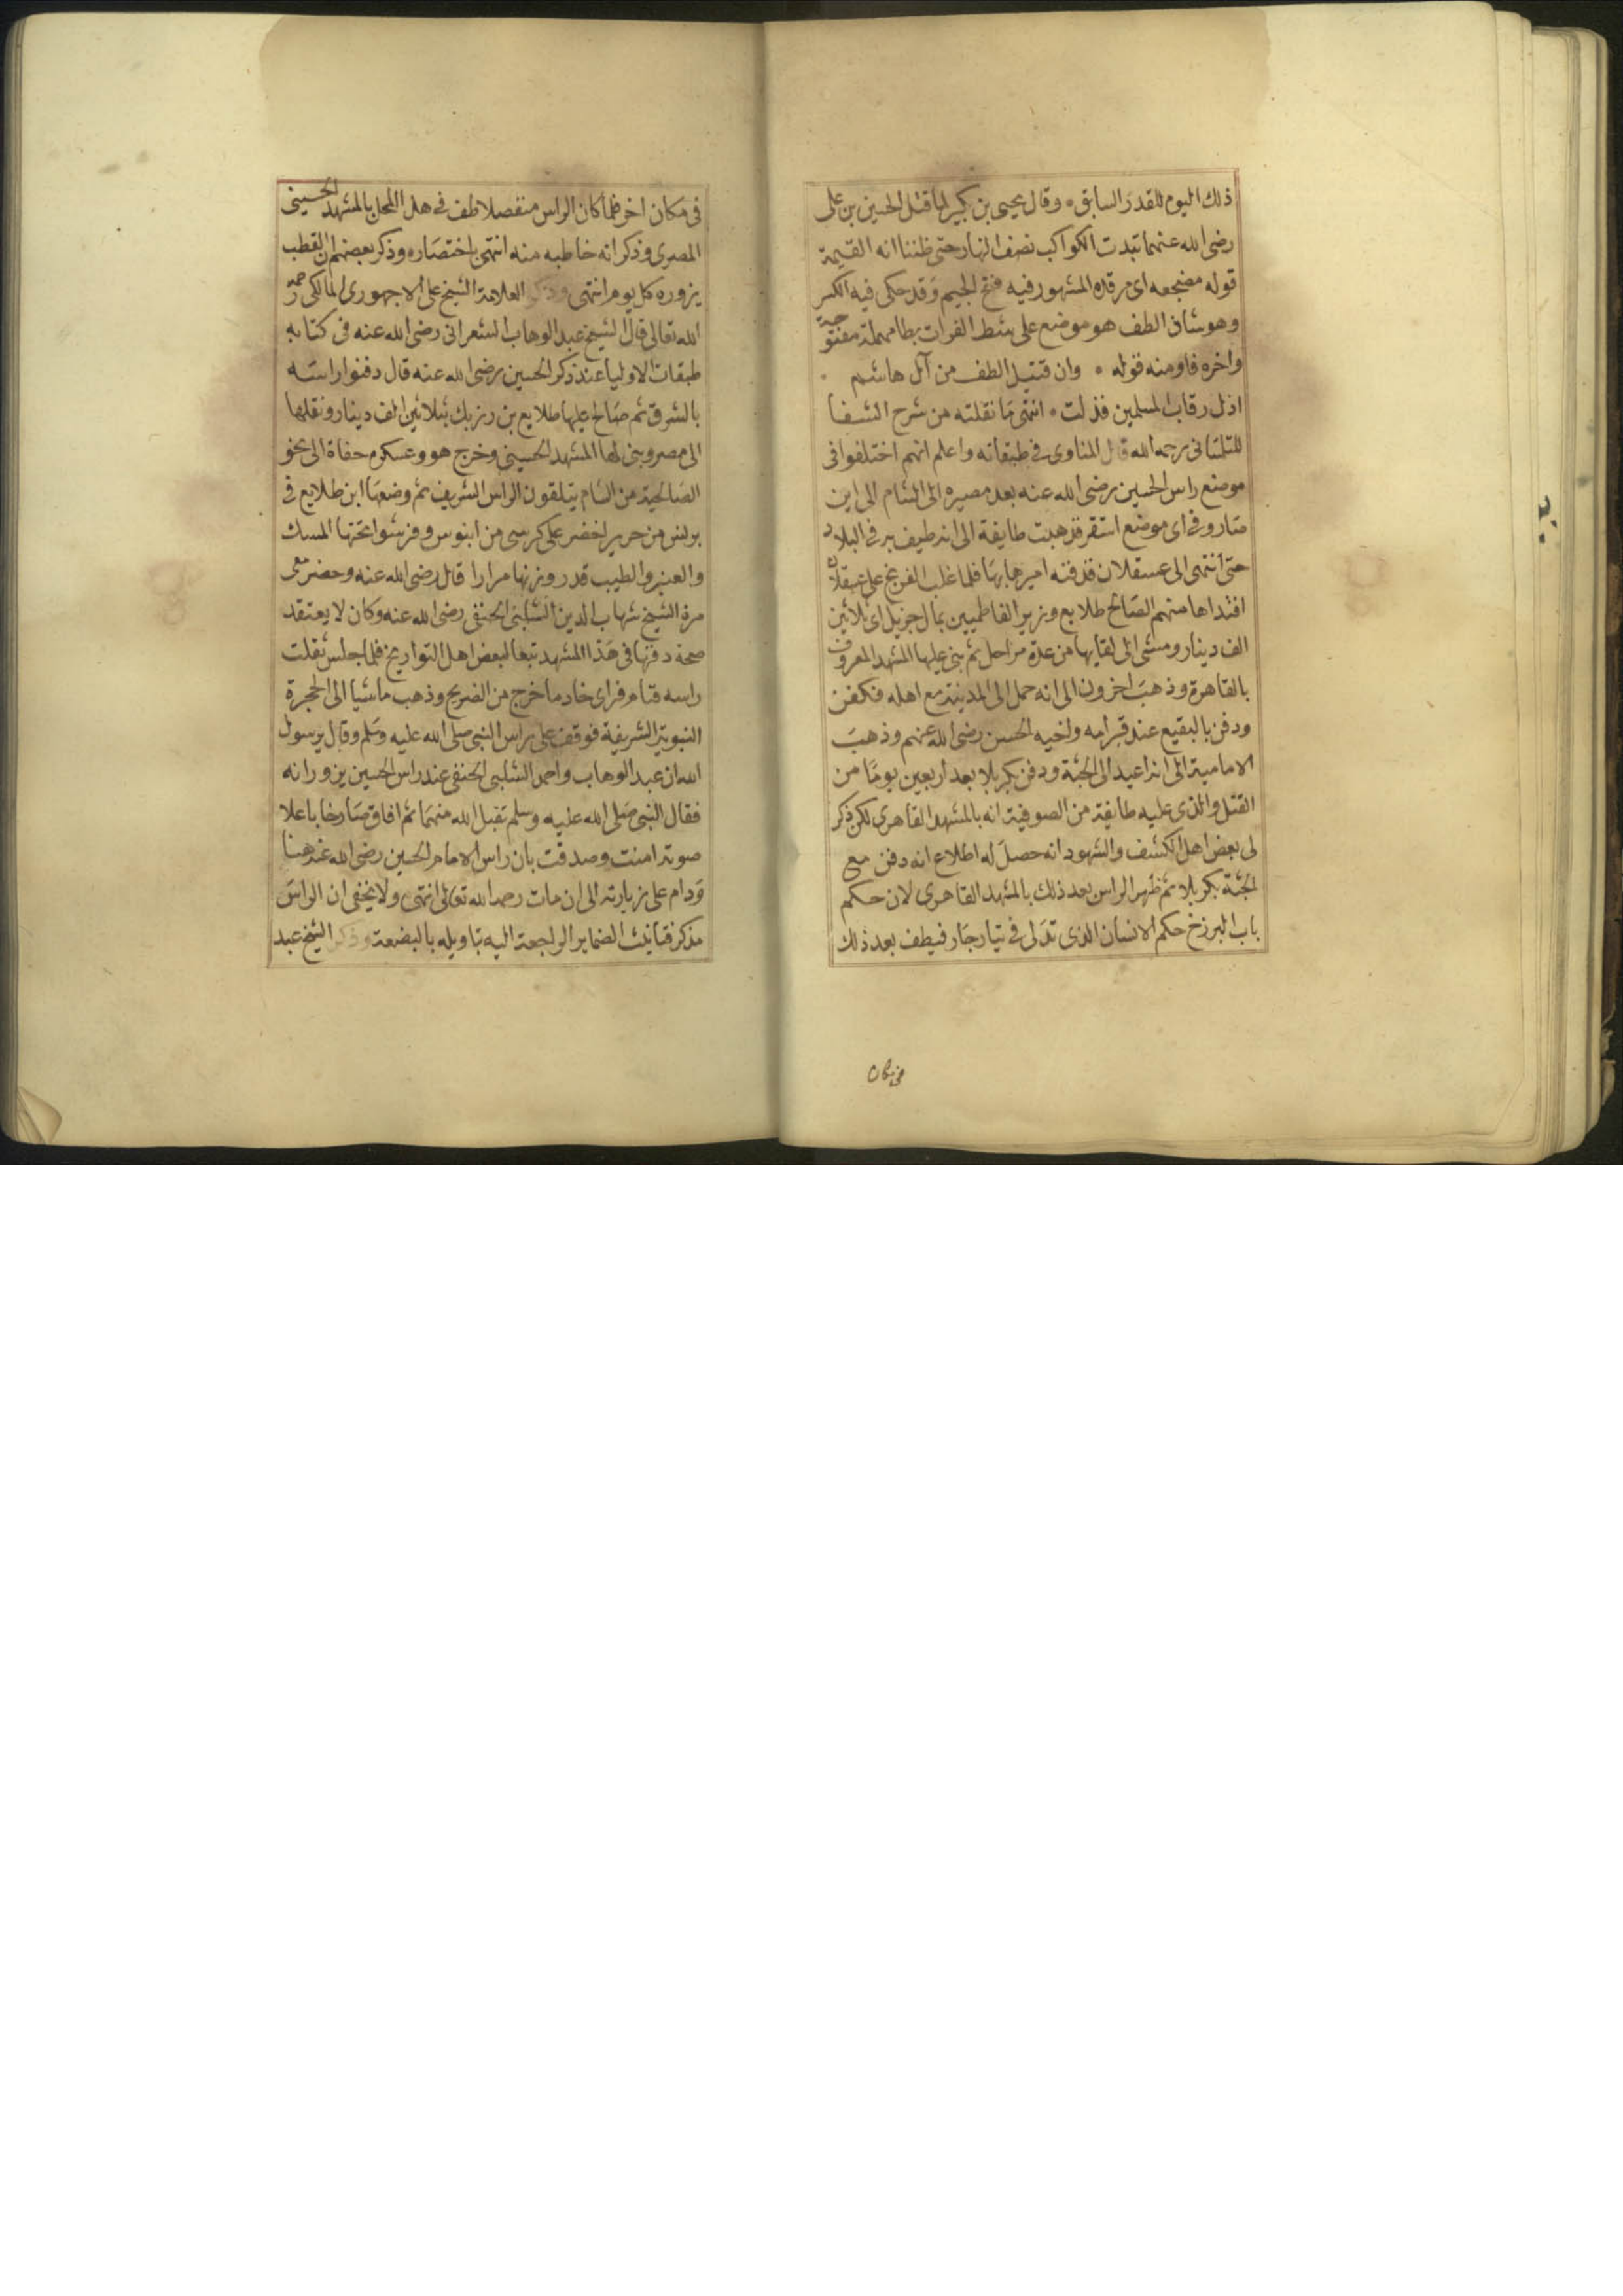 ذلك اليوم للقدر السابق • وقال يحيى بن بكير لما قتل الحسين بن على
رضى الله عنهما تبدت الكواكب نصف النهار حتى ظننا انه القيمة
قوله مضجعه اى مرقده المشهور فيه فتح الجيم وقد حكى فيه الكسر
وهو شاذ الطف هو موضع على شط الفرات بطا مهملة مفتوحة
واخره فا ومنه قوله • وان قتيل الطف من آل هاشم •
اذل رقاب المسلمين فذلت • انتهى ما نقلته من شرح الشفا
للتلمسانى رحمه الله قال المناوى فى طبقاته واعلم انهم اختلفوا فى
موضع راس الحسين رضى الله عنه بعد مصيره الى الشام الى اين
صار وفى اى موضع استقر فذهبت طايفة الى انه طيف به فى البلاد
حتى انتهى الى عسقلان فدفنه اميرها بها فلما غلب الفرنج على عسقلان
افتداها منهم الصالح طلايع وزير الفاطميين بمال جزيل اى ثلاثين
الف دينار ومشى الى لقايها من عدة مراحل ثم بنى عليها المشهد المعروف
بالقاهرة وذهب اخرون الى انه حمل الى المدينة مع اهله فكفن
ودفن بالبقيع عند قبر امه واخيه الحسن رضى الله عنهم وذهب
الامامية الى انه اعيد الى الجثة ودفن بكربلا بعد اربعين يوما من
القتل والذى عليه طايفة من الصوفية انه بالمشهد القاهرى لكن ذكر
لى بعض اهل الكشف والشهود انه حصل له اطلاع انه دفن مع
الجثة بكربلا ثم ظهر الراس بعد ذلك بالمشهد القاهرى لان حكم
باب البرزخ حكم الانسان الذى تدلى فى تيار جار فيطف بعد ذلك
فى مكان
فى مكان اخر فلما كان الراس منفصلا طف فى هذا المحل بالمشهد الحسينى
المصرى وذكر انه خاطبه منه انتهى باختصاره وذكر بعضهم ان القطب
يزوره كل يوم انتهى وذكر العلامة الشيخ على الاجهورى المالكى رحمه
الله تعالى قال الشيخ عبد الوهاب الشعرانى رضى الله عنه فى كتابه
طبقات الاوليا عند ذكر الحسين رضى الله عنه قال دفنوا راسه
بالشرق ثم صالح عليها طلايع بن رزيك بثلاثين الف دينار ونقلها
الى مصر وبنى لها المشهد الحسينى وخرج هو وعسكره حفاة الى نحو
الصالحية من الشام يتلقون الراس الشريف ثم وضعها ابن طلايع فى
برنس من حرير اخضر على كرسى من ابنوس وفرشوا تحتها المسك
والعنبر والطيب قدر وزنها مرارا قال رضى الله عنه وحضر معى
مرة الشيخ شهاب الدين الشلبى الحنفى رضى الله عنه وكان لا يعتقد
صحة دفنها فى هذا المشهد تبعا لبعض اهل التواريخ فلما جلس ثقلت
راسه فنام فراى خادما خرج من الضريح وذهب ماشيا الى الحجرة
النبوية الشريفة فوقف على راس النبى صلى الله عليه وسلم وقال يرسول
الله ان عبد الوهاب واحمد الشلبى الحنفى عند راس الحسين يزورانه
فقال النبى صلى الله عليه وسلم تقبل الله منهما ثم افاق صارخا باعلا
صوته امنت وصدقت بان راس الامام الحسين رضى الله عنه هنا
ودام على زيارته الى ان مات رحمه الله تعالى انتهى ولا يخفى ان الراس
مذكر فتانيث الضماير الراجعة اليه بتاويله بالبضعة وذكر الشيخ عبد